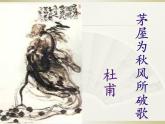 茅屋为秋风所破歌
杜甫